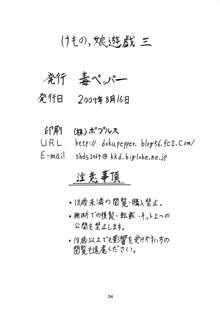 けもの娘遊戯 三
発行 毒ペッパー
発行日 2009年8月16日
印刷 (株)ポプルス
URL http://dokupepper.blog56.fc2.com/
E-mail shds2019@kkd.biglobe.ne.jp
注意事項
・18歳未満の閲覧・購入禁止。
・無断での複写・転載・ネット上への
公開を禁止します。
・18歳以上でも影響を受けやすい方の
閲覧も遠慮ください。
34